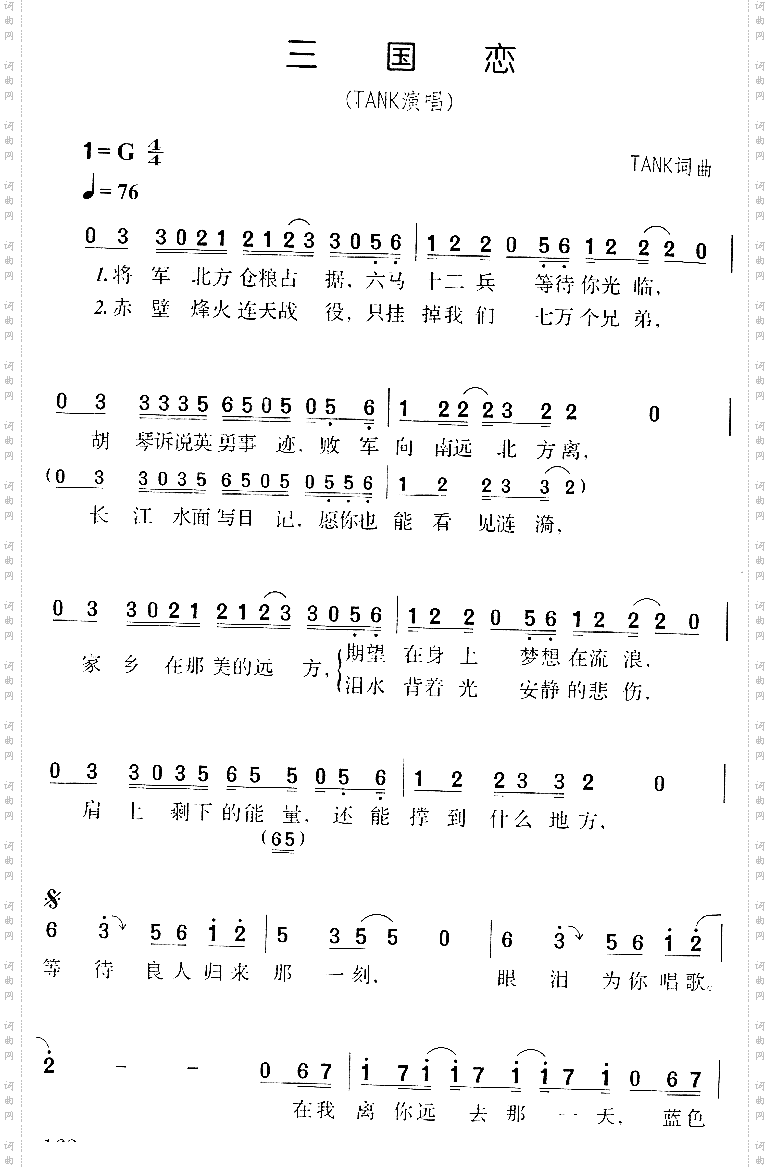 三国恋
(TANK演唱)
1=G 4/4
TANK词曲
♩=76
0 3 3021 2123 3056 | 122 0 56 12 220 |
1.将军北方仓粮占据,六马十二兵 等待你光临,
2.赤壁烽火连天战役,只挂掉我们 七万个兄弟,
0 3 3335 6505 05 6 | 1 22 23 22 0
胡琴诉说英勇事迹,败军向南远北方离,
(0 3 3035 6505 0556 | 1 2 23 3 2)
长江水面写日记,愿你也能看见涟漪,
0 3 3021 2123 3056 | 122 0 56 12 220 |
家乡在那美的远方,期望在身上 梦想在流浪,
泪水背着光 安静的悲伤,
0 3 3035 65 5 05 6 | 1 2 23 3 2 0
肩上剩下的能量,还能撑到什么地方,
(65)
6 3 56 12 | 5 355 0 | 6 3 56 12 |
等待良人归来那一刻, 眼泪为你唱歌。
2 - - 0 67 | 1 71 17 1 117 1 0 67 |
在我离你远去那一天,蓝色
词曲网